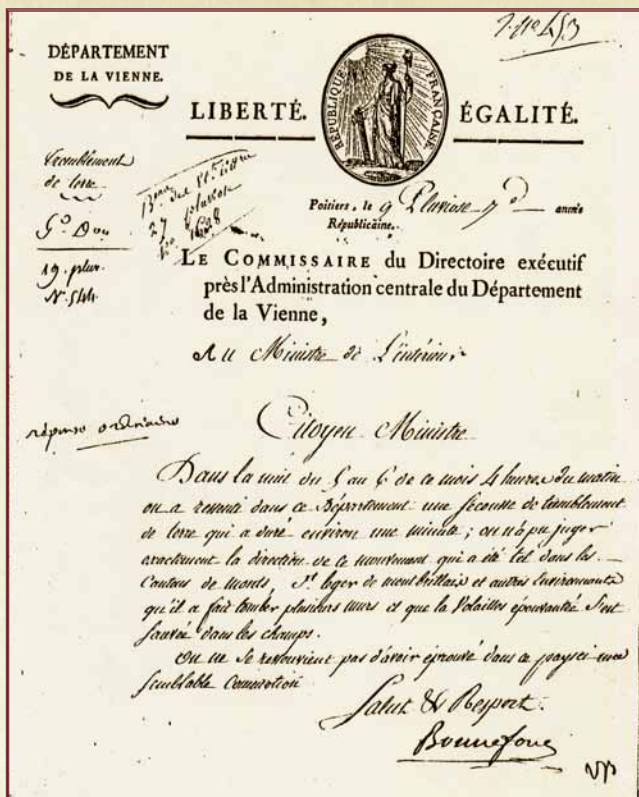 DÉPARTEMENT
DE LA VIENNE.
LIBERTÉ.
RÉPUBLIQUE FRANÇAISE
ÉGALITÉ.
tremblement
de terre
19. pluv.
N.° 544
27 pluviose
Poitiers, le 9 Pluviose 7.e année
Républicaine.
LE COMMISSAIRE du Directoire exécutif
près l'Administration centrale du Département
de la Vienne,
Au Ministre de L'intérieur,
réponse ordinaire
Citoyen Ministre
Dans la nuit du 5 au 6 de ce mois 4 heures du matin
on a ressenti dans ce Département une secousse de tremblement
de terre qui a duré environ une minute; on n'a pu juger
exactement la direction de ce mouvement qui a été tel dans les
Cantons de monts St leger de montbrillais et autres Environnants
qu'il a fait tomber plusieurs murs et que la Volailles épouvantée s'est
sauvée dans les champs.
On ne se ressouvient pas d'avoir éprouvé dans ce pays ci une
semblable Commotion
Salut & Respect.
Bonnefons